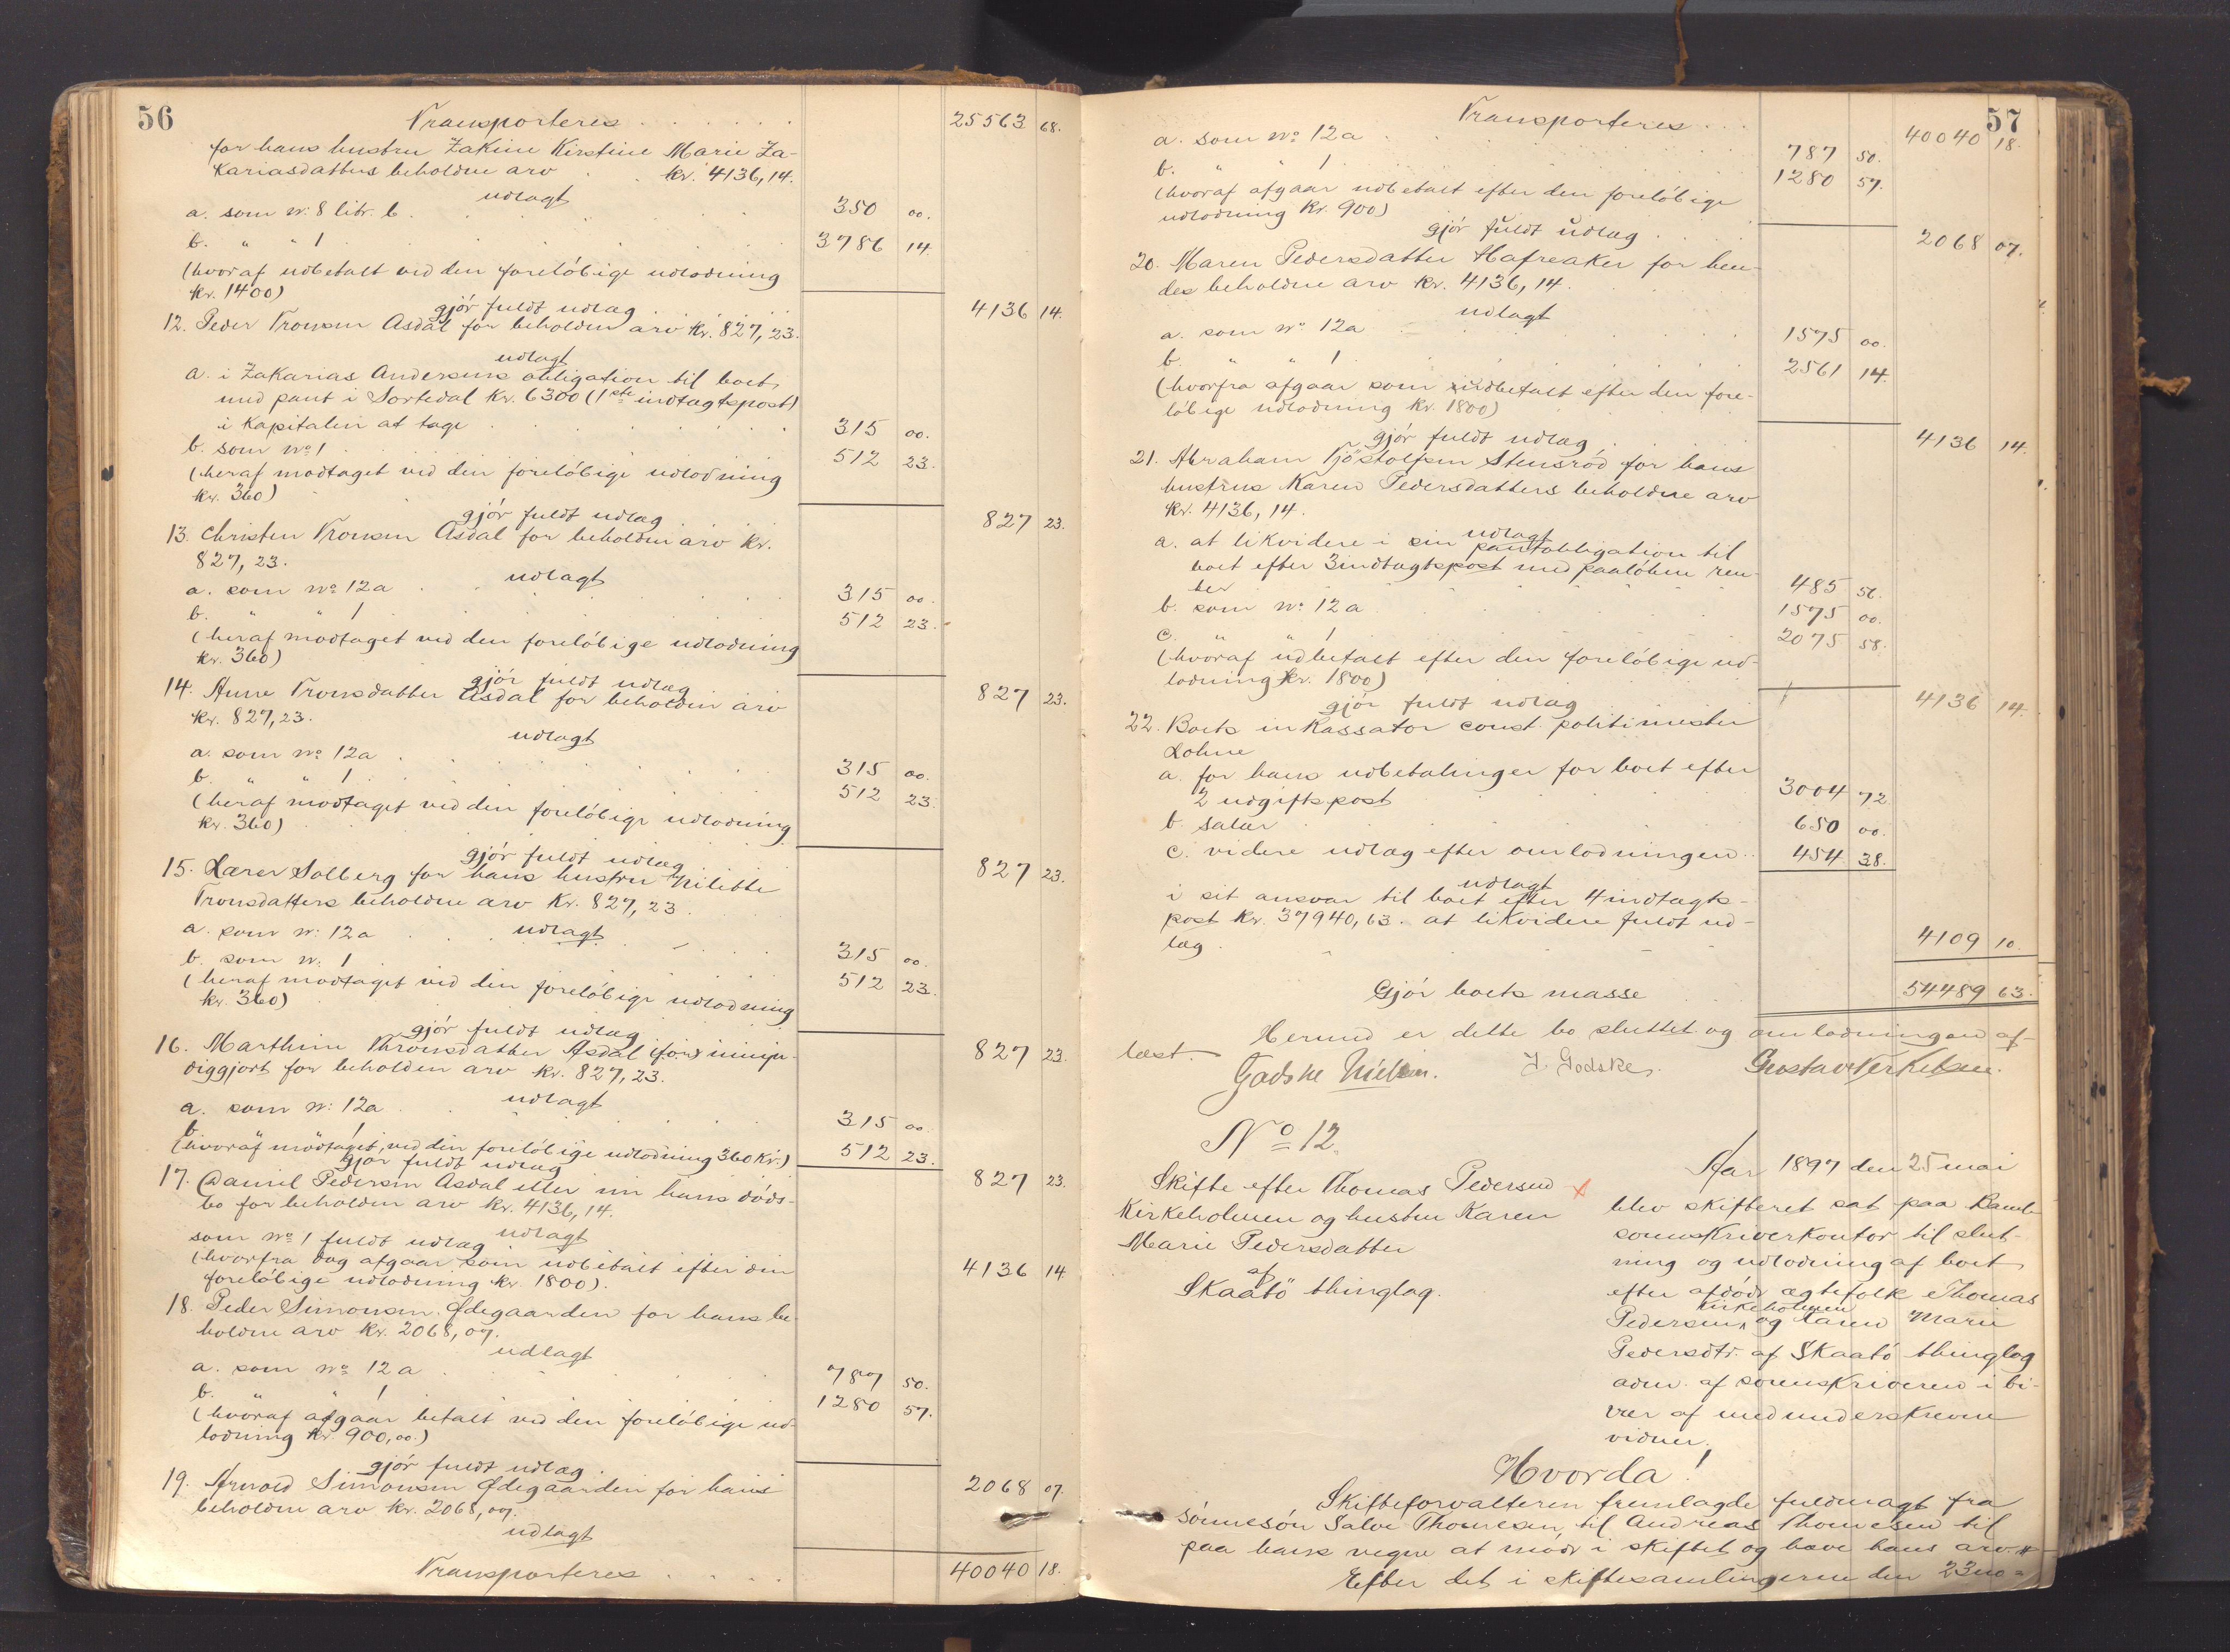 56
Transporteres . . . . . . 25563 68.
for hans hustru Zakine Kirstine Marie Za-
kariasdatters beholdne arv . . kr. 4136,14.
udlagt
a. som No. 8 litr. b. 350 00.
b. " " 1 3786 14
(hvoraf udbetalt ved den foreløbige udlodning
kr. 1400)
gjør fuldt udlæg 4136 14.
12. Peder Tronsen Asdal for beholden arv kr. 827,23.
udlagt
a. i Zakarias Andersens obligation til boet,
med pant i Sortedal kr. 6300 (1ste indtægtspost)
i kapitalen at tage 315 00.
b. som No 1 512 23.
(heraf modtaget ved den foreløbige udlodning
kr. 360)
gjør fuldt udlæg 827 23.
13. Christen Tronsen Asdal for beholden arv kr.
827,23.
udlagt
a. som No 12a 315 00.
b. " " 1 512 23.
(heraf modtaget ved den foreløbige udlodning
kr. 360)
gjør fuldt udlæg 827 23.
14. Anne Tronsdatter Asdal for beholden arv
kr. 827,23.
udlagt
a. som No 12a 315 00.
b. " " 1 512 23.
(heraf modtaget ved den foreløbige udlodning
kr. 360)
gjør fuldt udlæg 827 23.
15. Lærer Solberg for hans hustru
Tronsdatters beholdne arv kr. 827,23.
udlagt
a. som No: 12a 315 00.
b. som No. 1 512 23.
(heraf modtaget ved den foreløbige udlodning
kr. 360)
gjør fuldt udlæg 827 23.
16. Marthine Thronsdatter Asdal (for) minju-
diggjort for beholden arv kr. 827,23.
udlagt
a. som No: 12a 315 00.
b. " 1 512 23.
(hvoraf modtaget, ved den foreløbige udlodning 360 kr.)
gjør fuldt udlæg 827 23.
17. Daniel Pedersen Asdal eller nu hans døds-
bo for beholden arv kr. 4136,14.
udlagt
som No 1 fuldt udlæg 4136 14
(hvorfra dog afgaar som udbetalt efter den
foreløbige udlodning kr. 1800).
18. Peder Simonsen Ødegaarden for hans be-
holdne arv kr. 2068,07.
udlagt
a. som No 12a 787 50.
b. " " 1 1280 57.
(hvoraf afgaar betalt ved den foreløbige ud-
lodning kr. 900,00.)
gjør fuldt udlæg. 2068 07.
19. Arnold Simonsen Ødegaarden for hans
beholdne arv kr. 2068,07.
udlagt
Transporteres . . . . 40040 18.
57
Transporteres . . . 40040 18.
a. som No 12a 787 50.
b. " " 1 1280 57.
(hvoraf afgaar udbetalt efter den foreløbige
udlodning kr. 900)
gjør fuldt udlæg 2068 07.
20. Maren Pedersdatter Hafreaker for hen-
des beholdne arv kr. 4136,14.
udlagt
a. som No 12a 1575 00.
b. " " 1 2561 14.
(hvorfra afgaar som udbetalt efter den fore-
løbige udlodning kr. 1800)
gjør fuldt udlæg 4136 14.
21. Abraham Tjøstolfsen Stensrød for hans
hustrus Karen Pedersdatters beholdne arv
kr. 4136,14.
udlagt
a. at likvidere i sin pantobligation til
boet efter 3 indtægtspost med paaløbne ren-
ter 485 56.
b. som No: 12a 1575 00.
c. " " 1 2075 58.
(hvoraf udbetalt efter den foreløbige ud-
lodning kr. 1800)
gjør fuldt udlæg 4136 14.
22. Boets inkassator const. politimester
Lohne
a. for hans udbetalinger for boet efter
2 udgiftspost 3004 72
b. salær 650 00.
c. videre udlæg efter omlodningen 454 38.
udlagt
i sit ansvar til boet efter 4 indtægts-
post kr. 37940,63. at likvidere fuldt ud-
læg. 4109 10.
Gjør boets masse 54489 63.
Hermed er dette bo sluttet og omlodningen af-
læst.
Godske Nielsen. J. Godske. Gustav Terkelsen.
No 12.
Skifte efter Thomas Pedersen
Kirkeholmen og hustru Karen
Marie Pedersdatter
af
Skaatø thinglag.
Aar 1897 den 25 mai
blev skifteret sat paa Bamle
sorenskriverkontor til slut-
ning og udlodning af boet
efter afdøde ægtefolk Thomas
Kirkeholmen
Pedersen, og Karen Marie
Pedersdtr. af Skaatø thinglag
adm. af sorenskriveren i bi-
vær af medunderskrevne
vidner.
Hvorda!
Skifteforvalteren fremlagde fuldmagt fra
sønnesøn Salve Thomesen til Andreas Thomesen til
paa hans vegne at møde i skiftet og hæve hans arv.
Efter det i skiftesamlingerne den 23 no=